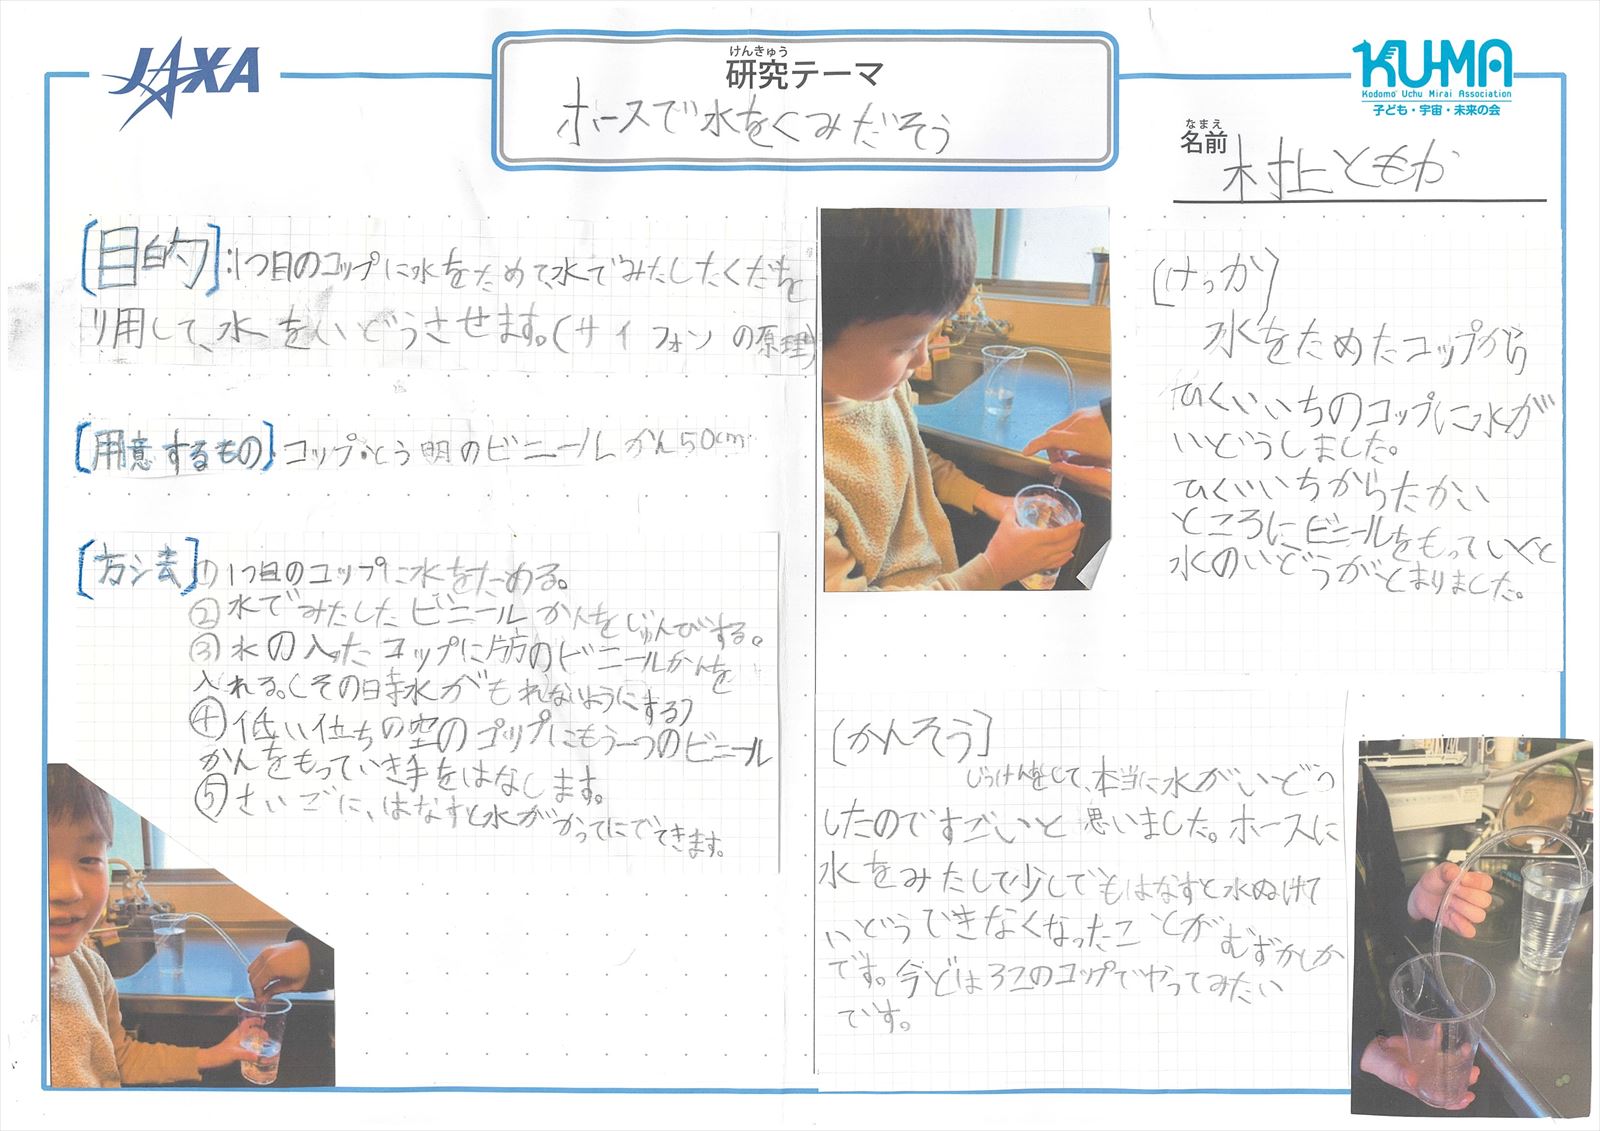 JAXA
けんきゅう
研究テーマ
ホースで水をくみだそう
KU-MA
Kodomo Uchu Mirai Association
子ども・宇宙・未来の会
なまえ
名前
村上ともか
[目的]:1つ目のコップに水をためて、水でみたしたくだを
り用して、水をいどうさせます。(サイフォンの原理)
[用意するもの]コップ・とう明のビニールかん50cm
[方法]① 1つ目のコップに水をためる。
②水でみたしたビニールかんをじゅんびする。
③水の入ったコップに片方のビニールかんを
入れる。(その時水がもれないようにする)
④低い位ちの空のコップにもう一つのビニール
かんをもっていき手をはなします。
⑤さいごに、はなすと水がかってにでてきます。
(けっか)
水をためたコップから
ひくいいちのコップに水が
いどうしました。
ひくいいちからたかい
ところにビニールをもっていくと
水のいどうがとまりました。
(かんそう]
じっけんをして、本当に水がいどう
したのですごいと思いました。ホースに
水をみたして少しでもはなすと水ぬけて
いどうできなくなったことがむずかしか
です。今どは3このコップでやってみたい
です。